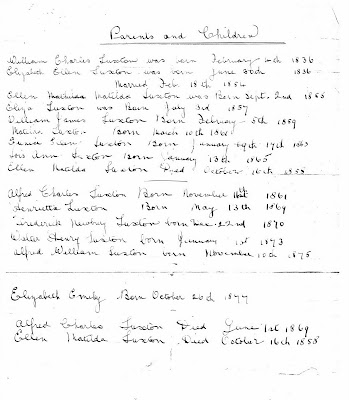 Parents and Children
William Charles Luxton was born February 10th 1836
Elizabeth Ellen Luxton was born June 30th 1836
Married Feb 18th 1854
Ellen Mathilda Matilda Luxton was Born Sept. 2nd 1855
Eliza Luxton was Born July 3rd 1857
William James Luxton Born February 5th 1859
Matilda Luxton Born March 10th 1860
Luxton Born January 17th 1863
Ann Luxton Born January 13th 1865
Ellen Matilda Luxton Dyed October 16th 1858
Alfred Charles Luxton Born November 1861
Henrietta Luxton Born May 13th 1869
Frederick Newbury Luxton born 22nd 1870
Walter Henry Luxton born January 1st 1873
Alfred William Luxton born November 10th 1875
Elizabeth Emily Born October 26th 1877
Alfred Charles Luxton Died June 1st 1869
Ellen Matilda Luxton Died October 16th 1858